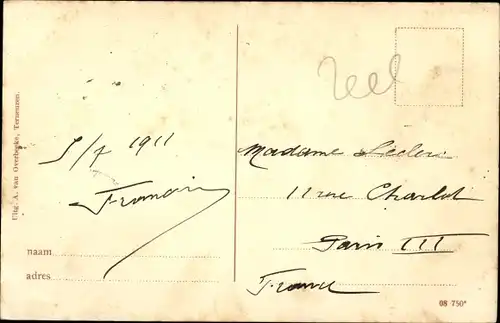 Uitg. A. van Overbeeke, Terneuzen.
5/7 1911
naam
adres
Madame Leclerc
11 rue Charlot
Paris III
France
08 750*